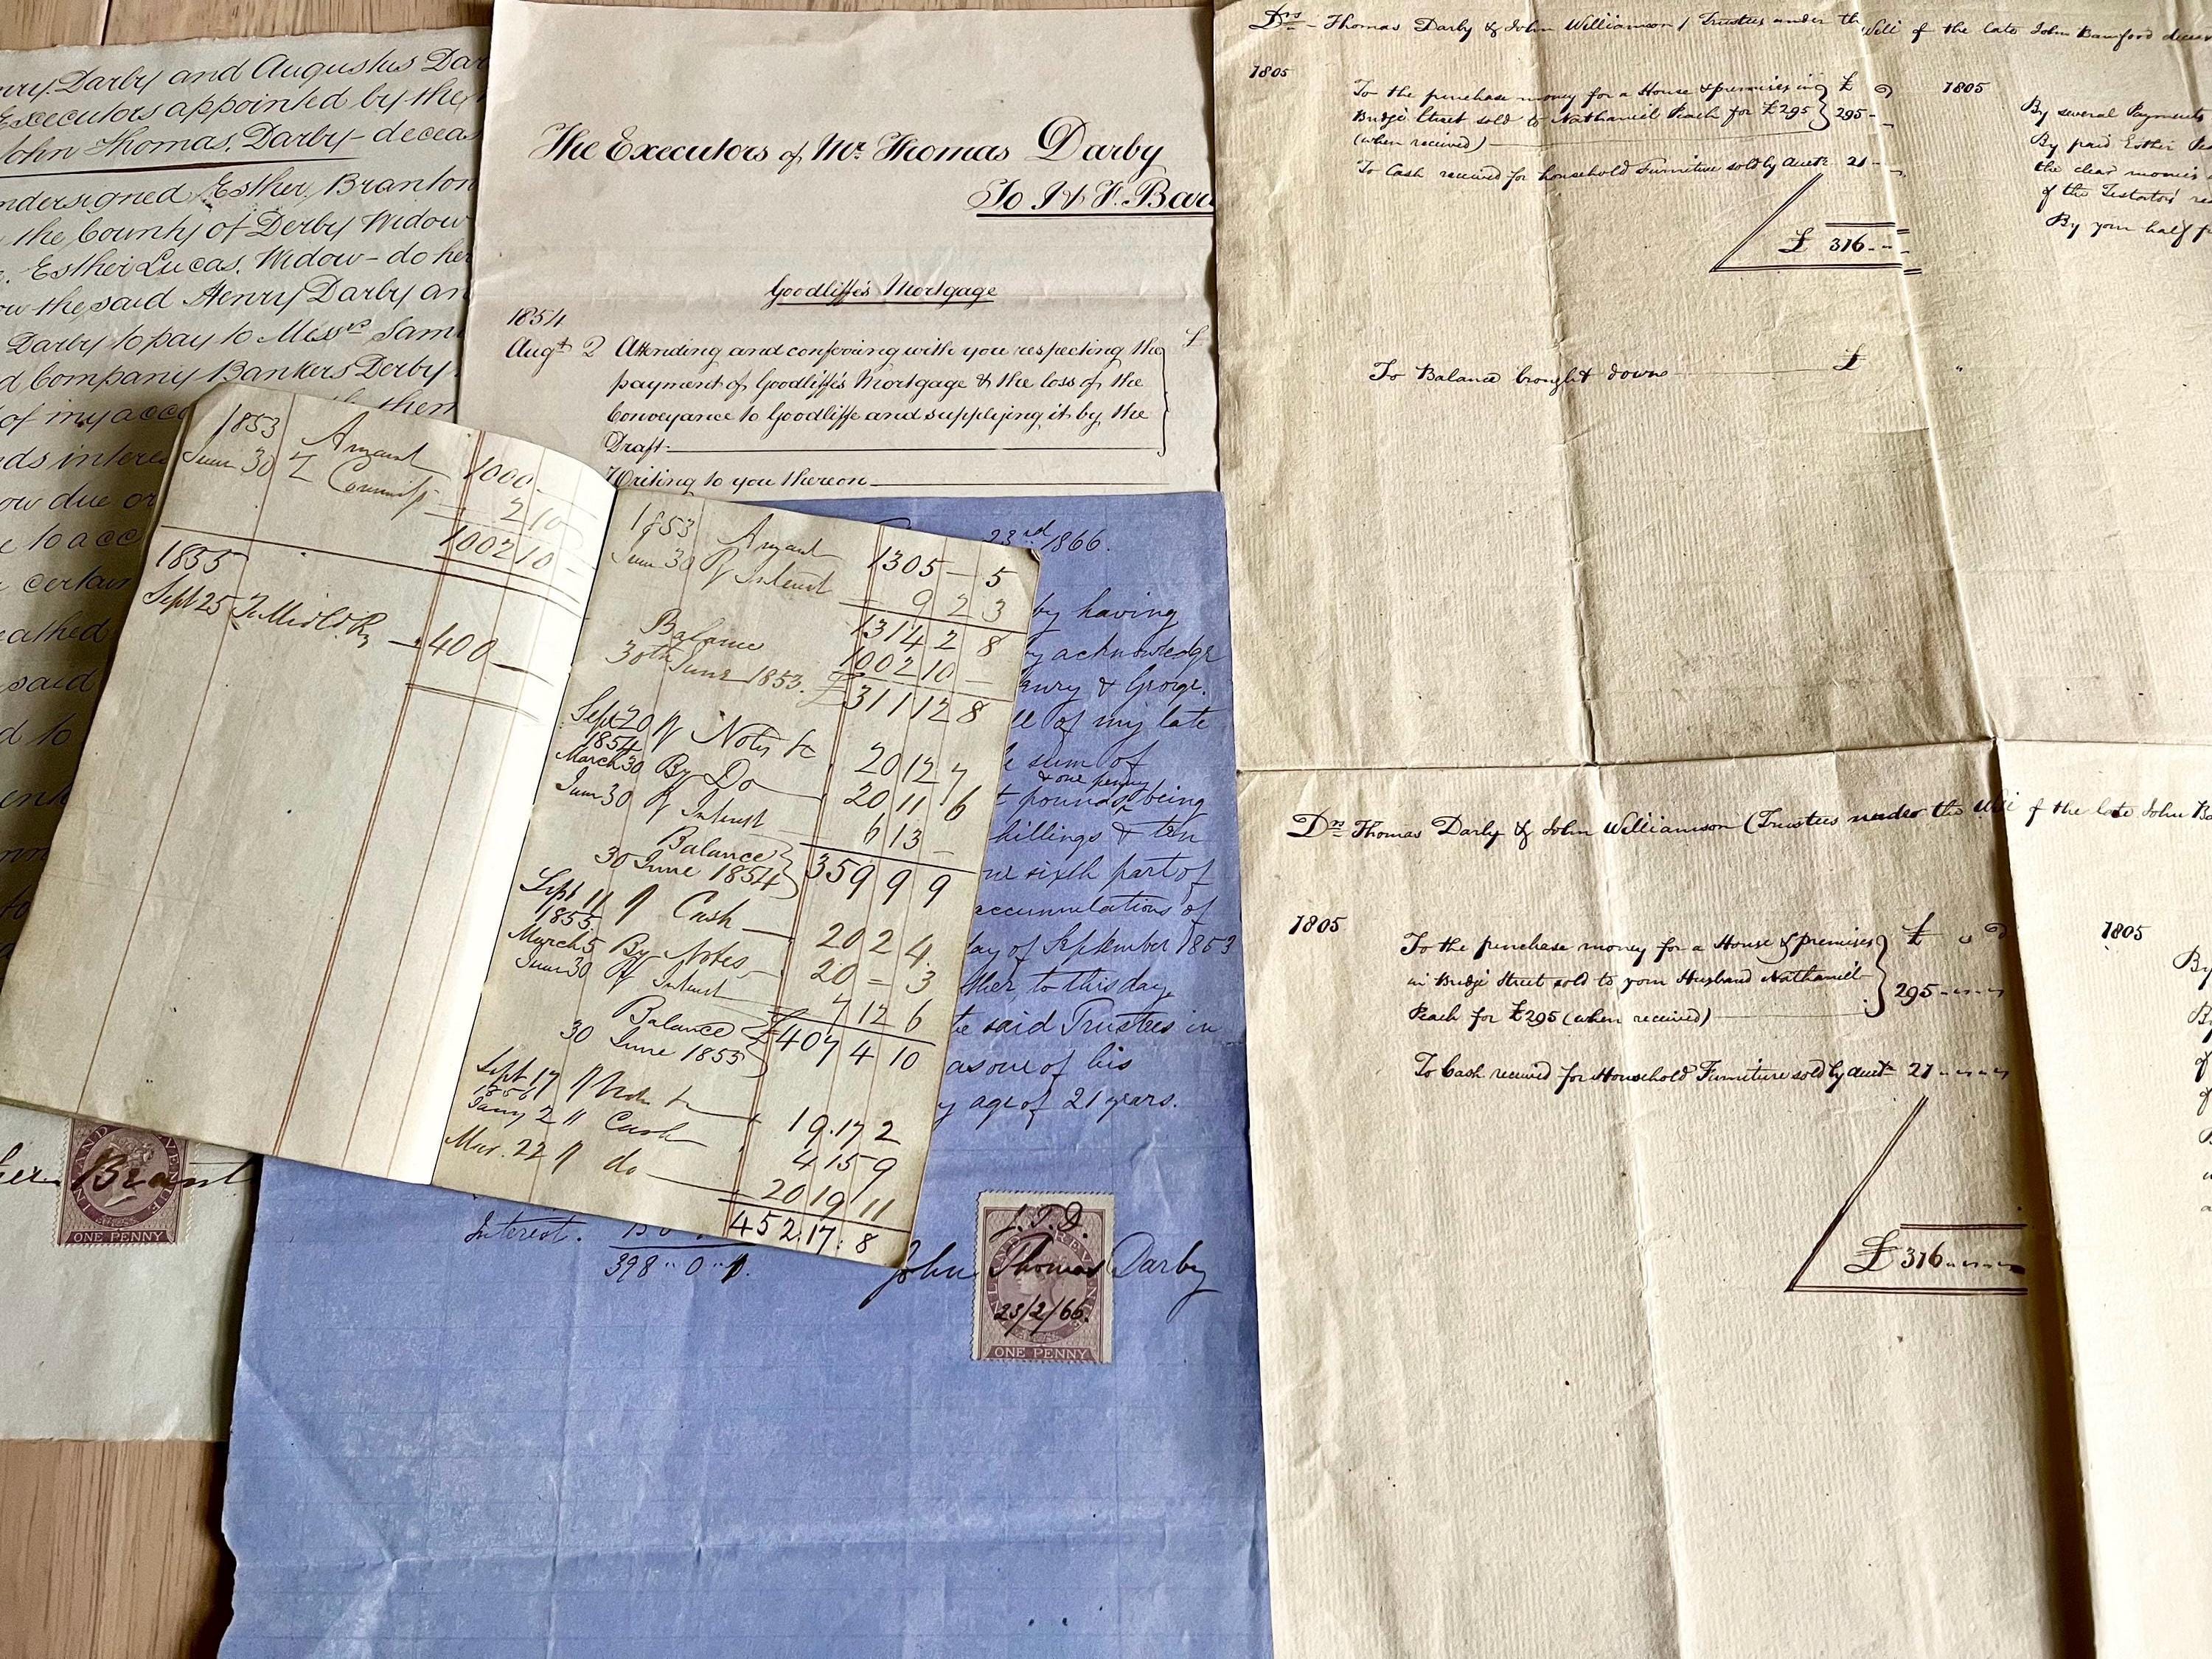 Henry Darby and Augustus
Executors appointed by the
John Thomas Darby - deceas
ndersigned Esther Branton
the County of Derby Widow
Esther Lucas, Widow - do her
the said Henry Darby an
Darby to pay to Messrs Sam
d Company Bankers Derby
of my acco
them
ds intere
ow due or
to acc
certain
eathed
said
d to
Brant
ONE PENNY
The Executors of Mr. Thomas Darby
To H. F.
Goodliffe's Mortgage
1854
Augt 2 Attending and conferring with you respecting the £
payment of Goodliffe's Mortgage & the loss of the
Conveyance to Goodliffe and supplying it by the
Draft
Writing to you thereon
1853 Amount 1000
June 30 Commiss 2 10
1002 10 -
1855
Sept 25 400
1853 Amount 1305 - 5
June 30 Interest 9 2 3
1314 2 8
Balance 1002 10 -
30th June 1853. £311 12 8
Sept 20 Notes &c 20 12 7
1854
March 30 By Do 20 11 6
June 30 Interest 6 13 -
Balance
30 June 1854 359 9 9
Sept 11 Cash 20 2 4
1855
March 5 By Notes 20 = 3
June 30 Interest 7 12 6
Balance £407 4 10
30 June 1855
Sept 17 19.17 2
1856
Jany 2 " Cash 4 15 9
Mar. 22 do 20 19 11
452.17:8
23rd 1866.
by having
by acknowledge
Henry & George
of my late
sum of
& one penny
pounds being
hillings & ten
one sixth part of
accumulations of
day of September 1853
ther to this day
the said Trustees in
as one of his
age of 21 years.
Interest.
398 " 0 " 1.
John Thomas Darby
J.T.D.
23/2/66.
ONE PENNY
Drs - Thomas Darby & John Williamson / Trustees under the Will of the late John Bamford
1805
To the purchase money for a House & premises in £
Bridge Street sold to Nathaniel Peach for £295 295-
(when received)
To Cash received for household Furniture sold by Auctn 21-
£ 316-
To Balance brought down £
1805
By several Payments
By paid Esther
the clear monies
of the Testator's
By your half
Drs Thomas Darby & John Williamson (Trustees under the Will of the late John
1805
To the purchase money for a House & premises £
in Bridge Street sold to your Husband Nathaniel
Peach for £295 (when received) 295
To Cash received for Household Furniture sold by Auctn 21
£ 316
1805
By